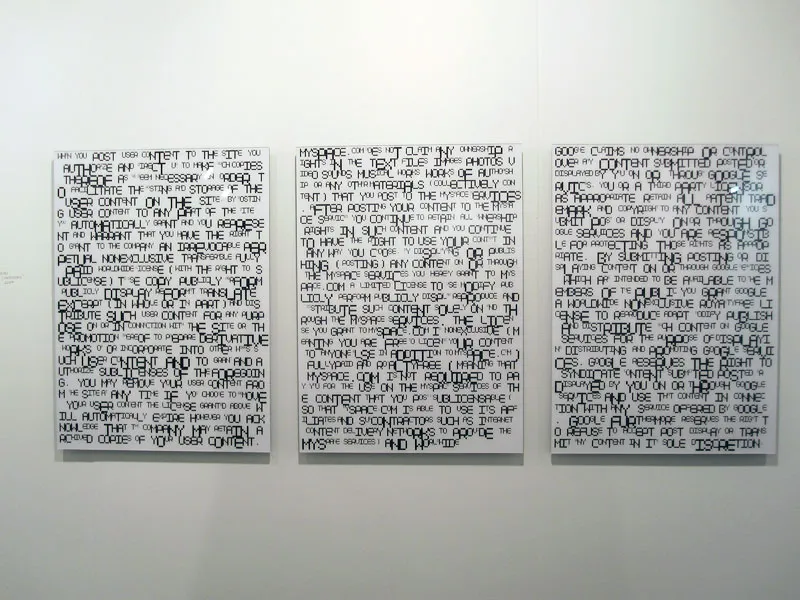 WHEN YOU POST USER CONTENT TO THE SITE YOU
AUTHORIZE AND DIRECT US TO MAKE SUCH COPIES
THEREOF AS WE DEEM NECESSARY IN ORDER T
O FACILITATE THE POSTING AND STORAGE OF THE
USER CONTENT ON THE SITE. BY POSTIN
G USER CONTENT TO ANY PART OF THE SITE
YOU AUTOMATICALLY GRANT AND YOU REPRESE
NT AND WARRANT THAT YOU HAVE THE RIGHT
TO GRANT TO THE COMPANY AN IRREVOCABLE PER
PETUAL NONEXCLUSIVE TRANSFERABLE FULLY
PAID WORLDWIDE LICENSE (WITH THE RIGHT TO S
UBLICENSE) TO USE COPY PUBLICLY PERFORM
PUBLICLY DISPLAY REFORMAT TRANSLATE
EXCERPT (IN WHOLE OR IN PART) AND DIS
TRIBUTE SUCH USER CONTENT FOR ANY PURP
OSE ON OR IN CONNECTION WITH THE SITE OR TH
E PROMOTION THEREOF TO PREPARE DERIVATIVE
WORKS OF OR INCORPORATE INTO OTHER WORKS S
UCH USER CONTENT AND TO GRAND AND A
UTHORIZE SUBLICENSES OF THE FOREGOIN
G. YOU MAY REMOVE YOUR USER CONTENT FRO
M THE SITE AT ANY TIME. IF YOU CHOOSE TO REMOVE
YOUR USER CONTENT THE LICENSE GRANTED ABOVE W
ILL AUTOMATICALLY EXPIRE HOWEVER YOU ACK
NOWLEDGE THAT THE COMPANY MAY RETAIN A
RCHIVED COPIES OF YOUR USER CONTENT.
MYSPACE.COM DOES NOT CLAIM ANY OWNERSHIP R
IGHTS IN THE TEXT FILES IMAGES PHOTOS V
IDEO SOUNDS MUSICAL WORKS WORKS OF AUTHORSH
IP OR ANY OTHER MATERIALS (COLLECTIVELY CON
TENT) THAT YOU POST TO THE MYSPACE SERVICES
. AFTER POSTING YOUR CONTENT TO THE MYSPAC
E SERVICES YOU CONTINUE TO RETAIN ALL OWNERSHIP
RIGHTS IN SUCH CONTENT AND YOU CONTINUE
TO HAVE THE RIGHT TO USE YOUR CONTENT IN
ANY WAY YOU CHOOSE. BY DISPLAYING OR PUBLIS
HING (POSTING) ANY CONTENT ON OR THROUGH
THE MYSPACE SERVICES YOU HEREBY GRANT TO MYS
PACE.COM A LIMITED LICENSE TO USE MODIFY PUB
LICLY PERFORM PUBLICLY DISPLAY REPRODUCE AND
DISTRIBUTE SUCH CONTENT SOLELY ON AND TH
ROUGH THE MYSPACE SERVICES. THE LICENS
E YOU GRANT TO MYSPACE.COM IS NONEXCLUSIVE (M
EANING YOU ARE FREE TO LICENSE YOUR CONTENT
TO ANYONE ELSE IN ADDITION TO MYSPACE.COM)
FULLYPAID AND ROYALTYFREE (MEANING THAT
MYSPACE.COM IS NOT REQUIRED TO PA
Y YOU FOR THE USE ON THE MYSPACE SERVICES OF TH
E CONTENT THAT YOU POST) SUBLICENSABLE (
SO THAT MYSPACE.COM IS ABLE TO USE ITS AFF
ILIATES AND SUBCONTRACTORS SUCH AS INTERNET
CONTENT DELIVERY NETWORKS TO PROVIDE THE
MYSPACE SERVICES) AND WORLDWIDE
GOOGLE CLAIMS NO OWNERSHIP OR CONTROL
OVER ANY CONTENT SUBMITTED POSTED OR
DISPLAYED BY YOU ON OR THROUGH GOOGLE SE
RVICES. YOU OR A THIRD PARTY LICENSOR
AS APPROPRIATE RETAIN ALL PATENT TRAD
EMARK AND COPYRIGHT TO ANY CONTENT YOU S
UBMIT POST OR DISPLAY ON OR THROUGH GO
OGLE SERVICES AND YOU ARE RESPONSIB
LE FOR PROTECTING THOSE RIGHTS AS APPROP
RIATE. BY SUBMITTING POSTING OR DI
SPLAYING CONTENT ON OR THROUGH GOOGLE SERVICES
WHICH ARE INTENDED TO BE AVAILABLE TO THE M
EMBERS OF THE PUBLIC YOU GRANT GOOGLE
A WORLDWIDE NONEXCLUSIVE ROYALTYFREE LI
CENSE TO REPRODUCE ADAPT MODIFY PUBLISH
AND DISTRIBUTE SUCH CONTENT ON GOOGLE
SERVICES FOR THE PURPOSE OF DISPLAYI
NG DISTRIBUTING AND PROMOTING GOOGLE SERVI
CES. GOOGLE RESERVES THE RIGHT TO
SYNDICATE CONTENT SUBMITTED POSTED OR
DISPLAYED BY YOU ON OR THROUGH GOOGLE
SERVICES AND USE THAT CONTENT IN CONNEC
TION WITH ANY SERVICE OFFERED BY GOOGLE
. GOOGLE FURTHERMORE RESERVES THE RIGHT T
O REFUSE TO ACCEPT POST DISPLAY OR TRANS
MIT ANY CONTENT IN ITS SOLE DISCRETION.